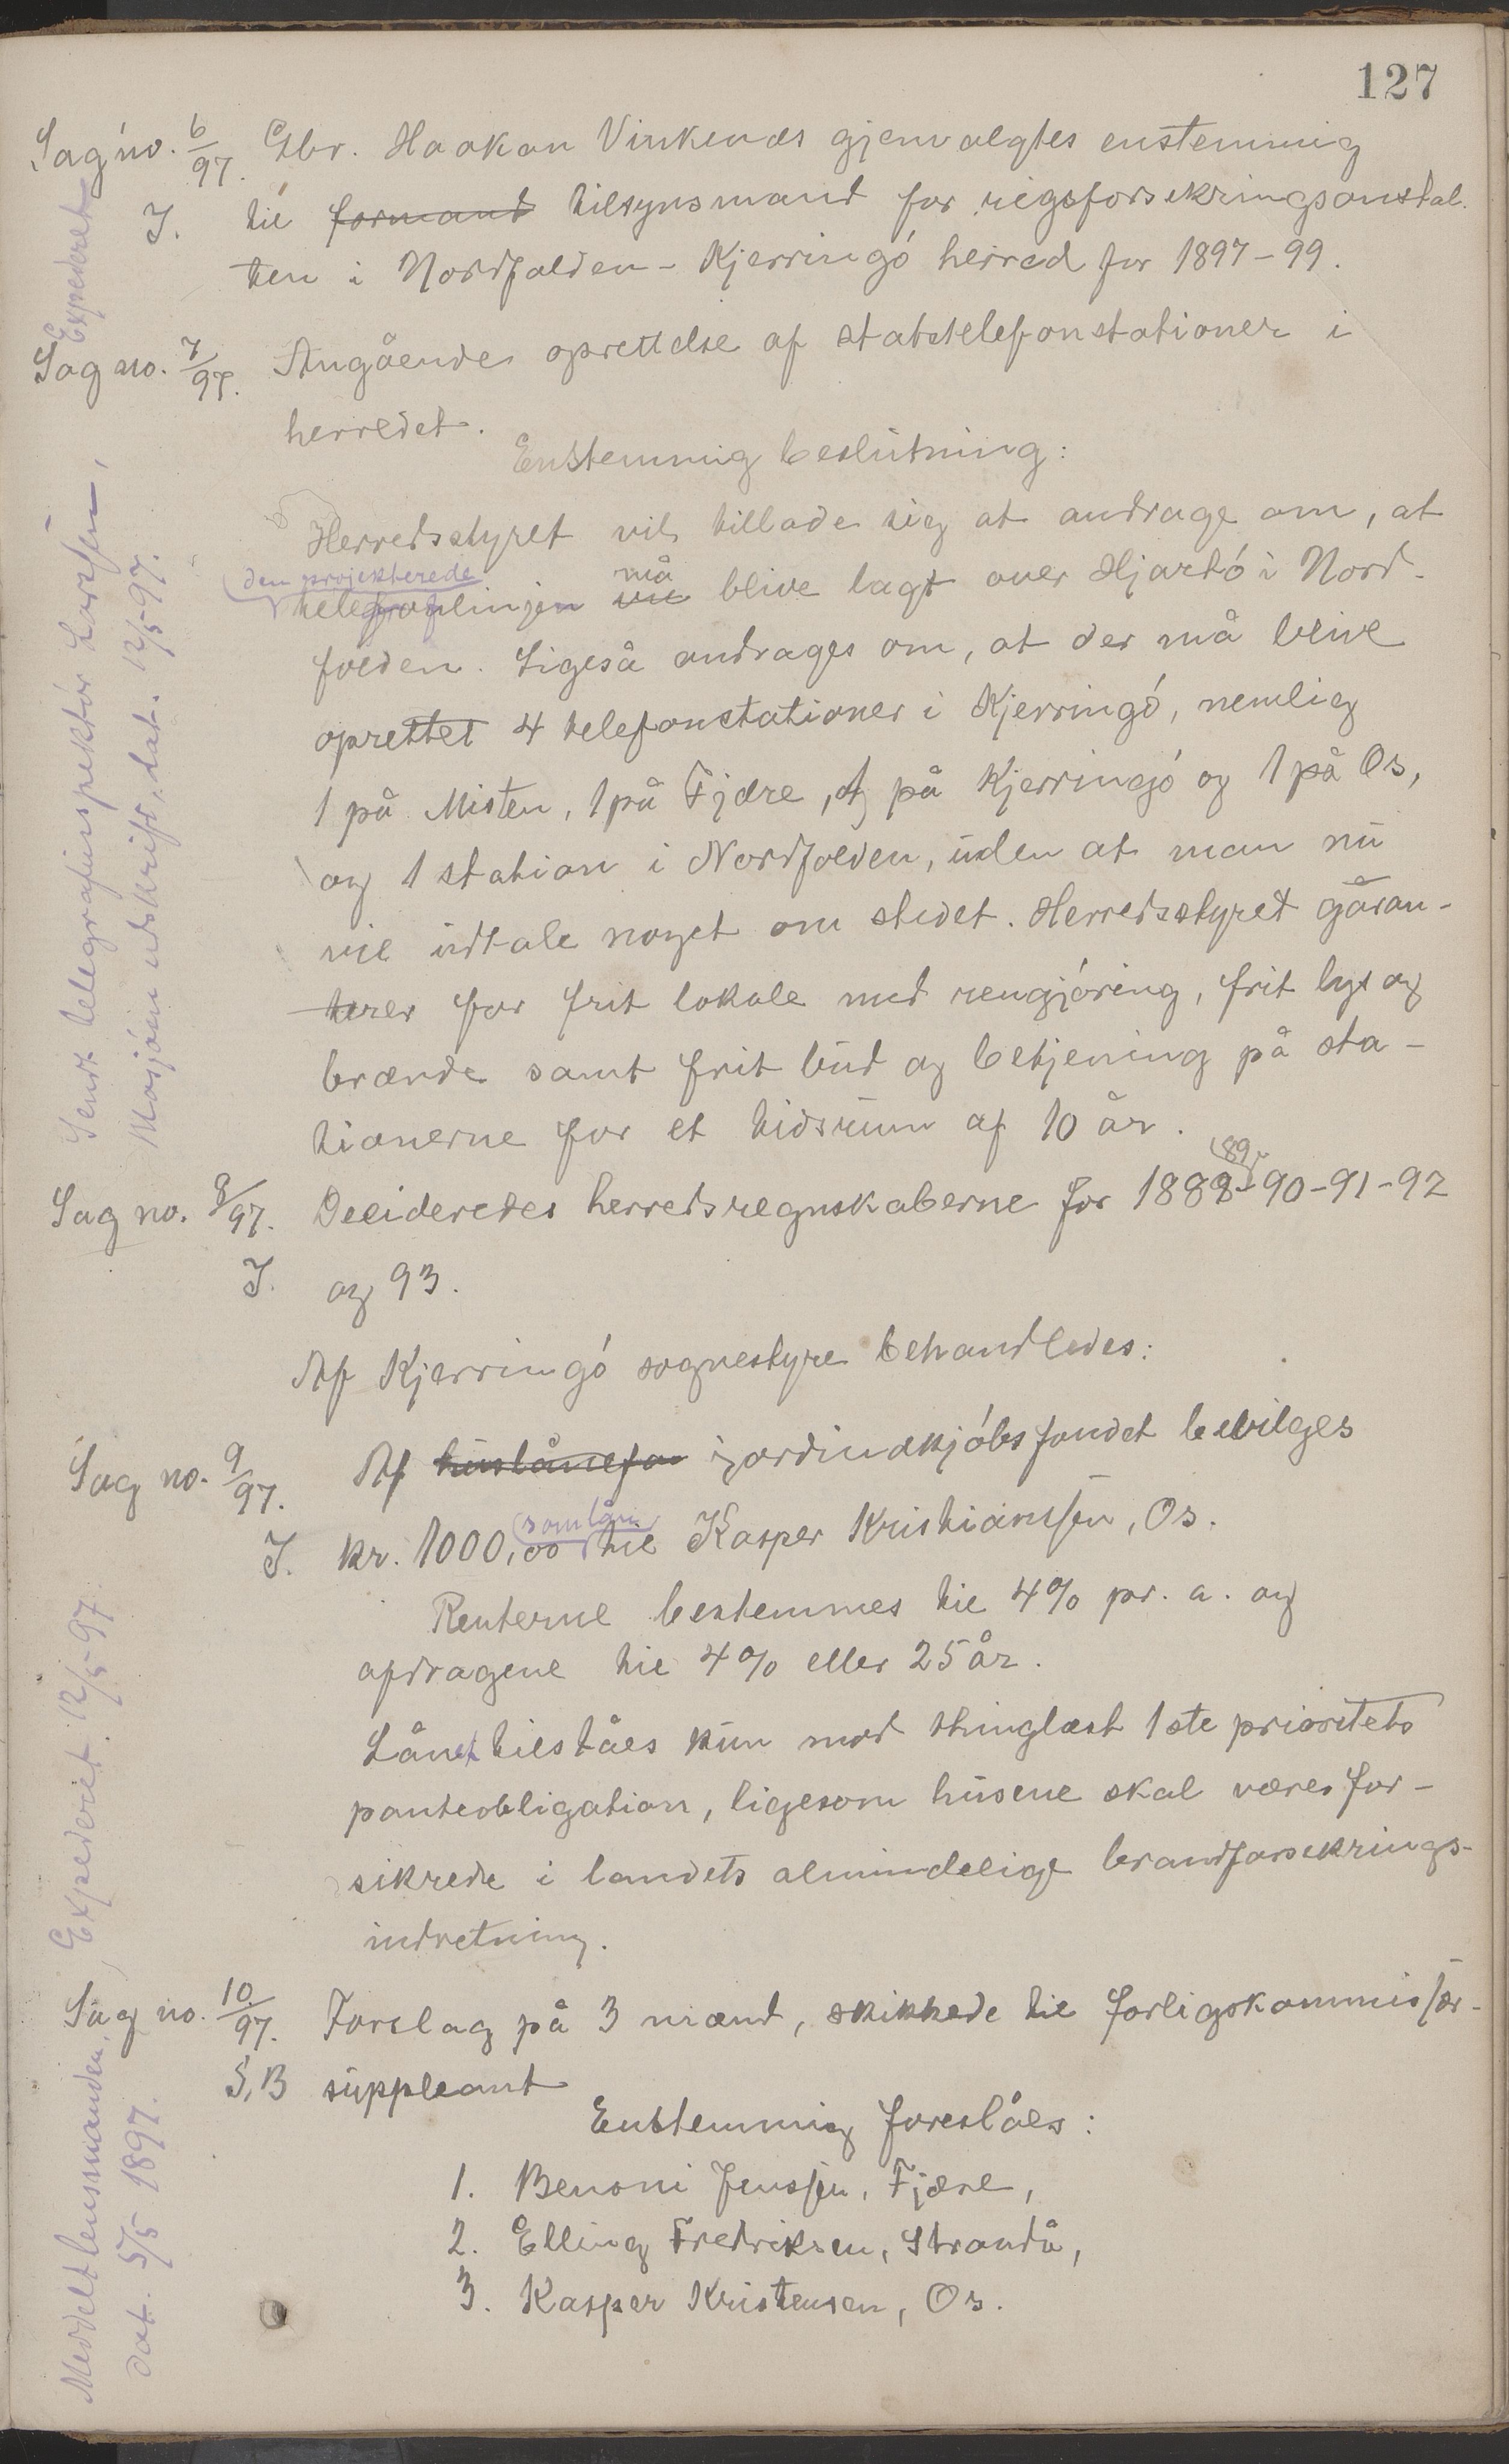 127
Sag no. 6/97. Gbr. Haakon Vinkenæs gjenvalgtes enstemmig
J. til formand tilsynsmand for rigsforsikringsanstal-
ten i Nordfolden-Kjerringó herred for 1897-99.
Expederet
Sag no. 7/97. Angående oprettelse af statstelefonstationer i
herredet.
Enstemmig beslutning:
Herredsstyret vil tillade sig at andrage om, at
den projekterede må
telefonlinjen vil blive lagt over Hjartó i Nord-
folden. Ligeså andrages om, at der må blive
oprettet 4 telefonstationer i Kjerringó, nemlig
1 på Misten, 1 på Fjære, 1 på Kjerringó og 1 på Os,
og 1 station i Nordfolden, uden at man nu
vil udtale noget om stedet. Herredsstyret garan-
terer for frit lokale med rengjóring, frit lys og
brænde samt frit bud og betjening på sta-
tionerne for et tidsrum af 10 år.
Sendt telegrafinspektór Larssen,
Mosjóen udskrift, dat. 12/5-97.
89
Sag no. 8/97. Decideredes herredsregnskaberne for 1888-90-91-92
J. og 93.
Af Kjerringó sognestyre behandledes:
Sag no. 9/97. Af huslånefon jordindkjóbsfondet bevilges
som lån
J. kr. 1000,00 til Kasper Kristianssen, Os.
Renterne bestemmes til 4% pr. a. og
afdragene til 4% eller 25 år.
Lånet tilståes kun mod thinglæst 1ste prioritets
panteobligation, ligesom husene skal være for-
sikrede i landets almindelige brandforsikrings-
indretning.
Expederet 12/5-97.
Sag no. 10/97. Forslag på 3 mænd, skikkede til forligskommissær-
S, B suppleant
Enstemmig foreslåes:
1. Benoni Jenssen, Fjære,
2. Elling Fredriksen, Strandå,
3. Kasper Kristensen, Os.
Meddelt lensmanden,
dat. 5/5 1897.